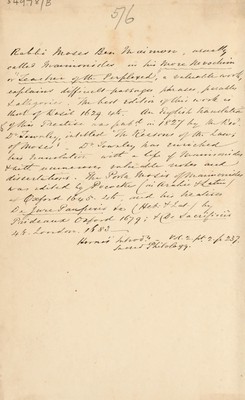 34978/B
5/6
Rabbi Moses Ben Maimon, usually
called Maimonides in his More Nevochim
or Teacher of the Perplexed, a valuable work,
explains difficult passages phrases, parables
& allegories. The best edition of this work is
that of Basil 1629 4to. An English Translation
of this Treatise was pubd. in 1827 by the Revd.
Dr Townley, intitled The Reasons of the Laws
of Moses. Dr Townley has enriched
his translation with a life of Maimonides
& with numerous valuable notes and
dissertations. The Porta Mosis of Maimonides
was edited by Pococke (in Arabic & Latin)
at Oxford 1645. 4to, and his treatise
De Jure Pauperis &c (Heb. & Lat.) by
Prideaux Oxford 1679; & (De Sacrificiis
4to London. 1683
Horne's Introdn. Vol. 2. pt. 2. p 237.
Sacred Philology.